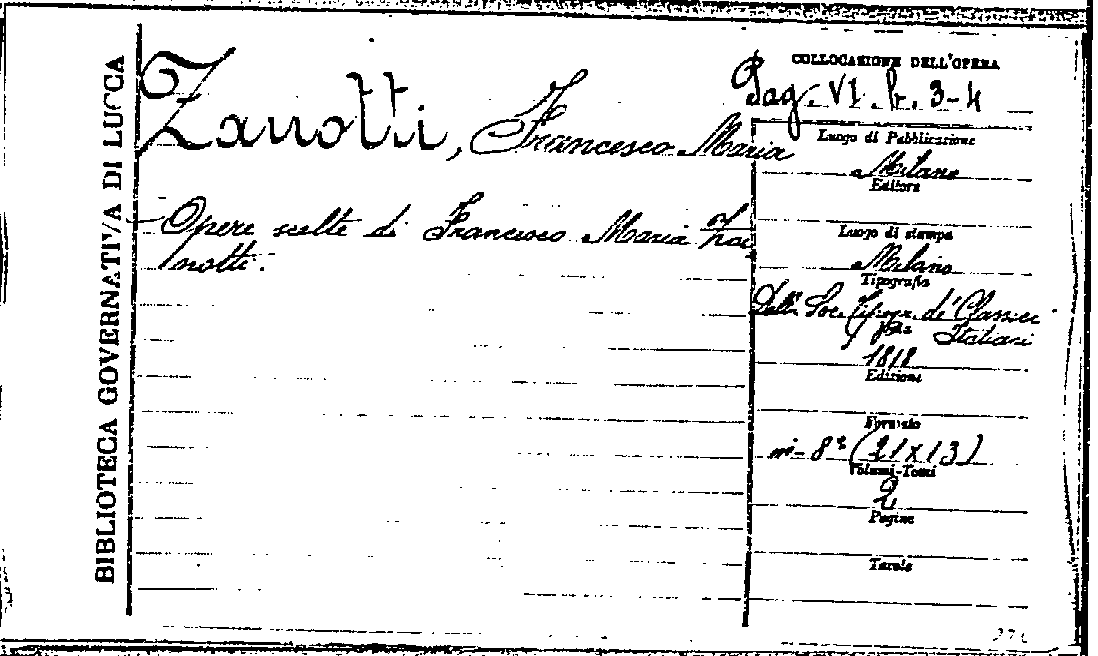 BIBLIOTECA GOVERNATIVA DI LUCCA
Zanotti, Francesco Maria
Opere scelte di Francesco Maria Za-
notti.
COLLOCAZIONE DELL'OPERA
Pag. VI. b. 3-4
Luogo di Pubblicazione
Milano
Editore
Luogo di stampa
Milano
Tipografia
Dalla Soc. Tipogr. de' Classici
Italiani
1818
Edizione
Formato
in-8° (21x13)
Volumi-Tomi
2
Pagine
Tavole